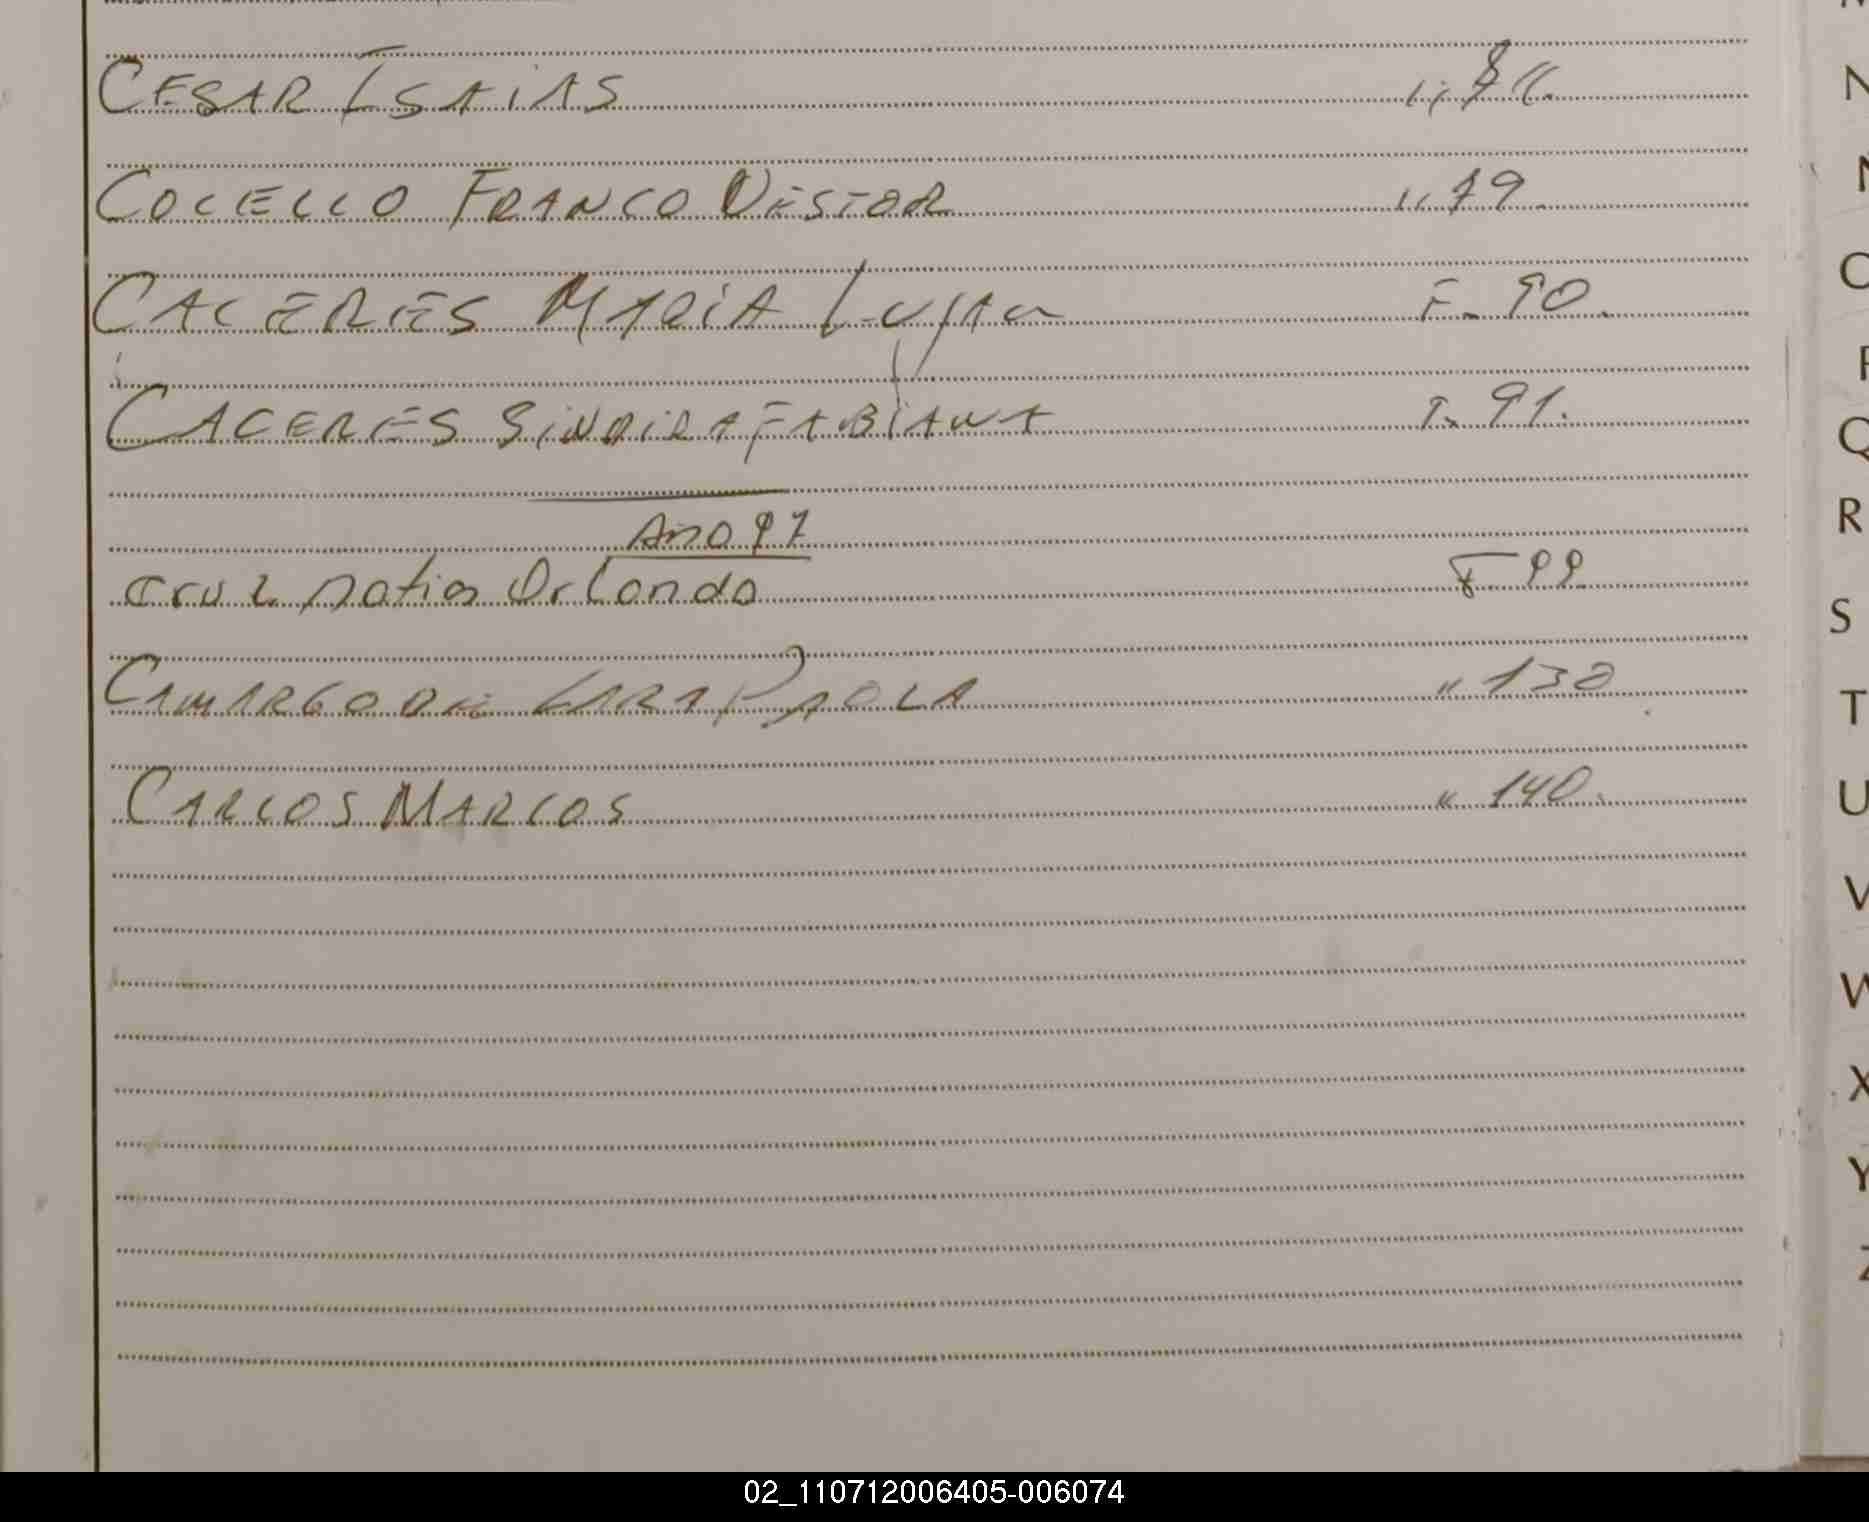 CESAR ISAIAS
COCELLO FRANCO NESTOR „ 79.
CACERES MARIA Lujan F. 90.
CACERES SINDIRA FABIANA F. 91.
Año 97
Cruz Matias Orlando F 99
CAMARGO DE LARA PAOLA „ 130
CARLOS MARCOS „ 140.
N
O
P
Q
R
S
T
U
V
W
X
Y
Z
02_110712006405-006074